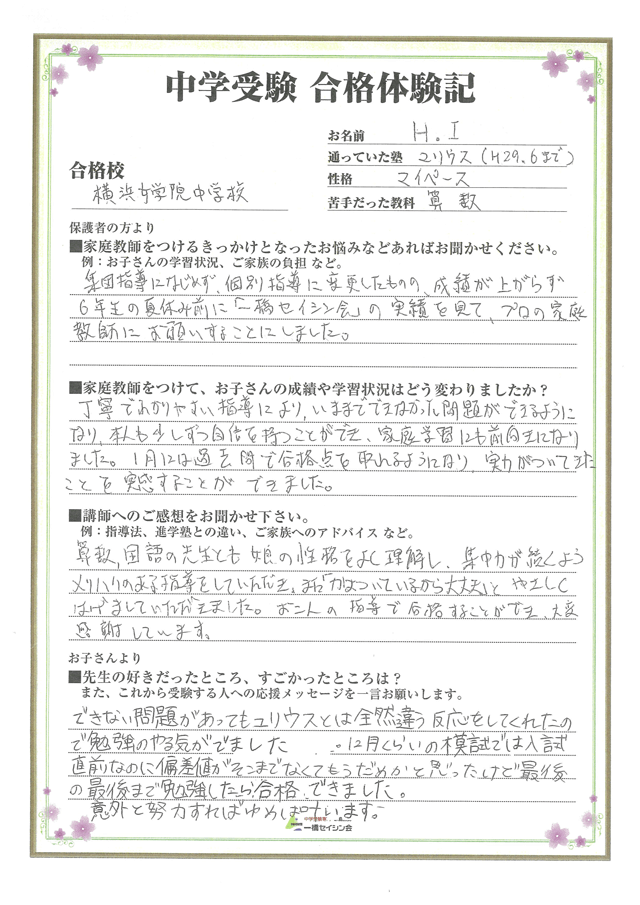 中学受験 合格体験記
お名前 H.I
通っていた塾 ユリウス(H29.6まで)
合格校
性格 マイペース
横浜女学院中学校
苦手だった教科 算数
保護者の方より
■家庭教師をつけるきっかけとなったお悩みなどあればお聞かせください。
例:お子さんの学習状況、ご家族の負担 など。
集団指導になじめず、個別指導に変更したものの、成績が上がらず
6年生の夏休み前に「一橋セイシン会」の実績を見て、プロの家庭
教師にお願いすることにしました。
■家庭教師をつけて、お子さんの成績や学習状況はどう変わりましたか?
丁寧でわかりやすい指導により、いままでできなかった問題ができるように
なり、本人も少しずつ自信を持つことができ、家庭学習にも前向きになり
ました。1月には過去問で合格点を取れるようになり、実力がついてきた
ことを実感することができました。
■講師へのご感想をお聞かせ下さい。
例:指導法、進学塾との違い、ご家族へのアドバイス など。
算数、国語の先生とも娘の性格をよく理解し、集中力が続くよう
メリハリのある指導をしていただき、また「力はついているから大丈夫」とやさしく
はげましていただきました。お二人の指導で合格することができ、大変
感謝しています。
お子さんより
■先生の好きだったところ、すごかったところは?
また、これから受験する人への応援メッセージを一言お願いします。
できない問題があってもユリウスとは全然違う反応をしてくれたの
で勉強のやる気がでました 。12月くらいの模試では入試
直前なのに偏差値がそこまでなくてもうだめかと思ったけど最後
の最後まで勉強したら合格できました。
意外と努力すればゆめは叶います。
中学受験専門
一橋セイシン会